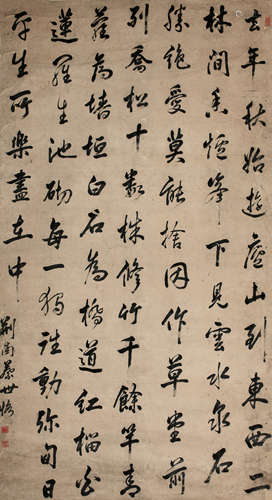 去年秋始遊廬山到東西二
林間香爐峯下見雲水泉石
勝絶愛莫能捨因作草堂前
列喬松十數株修竹千餘竿青
蘿為墻垣白石為橋道紅榴白
蓮羅生池砌每一獨往動弥旬日
平生所樂盡在中